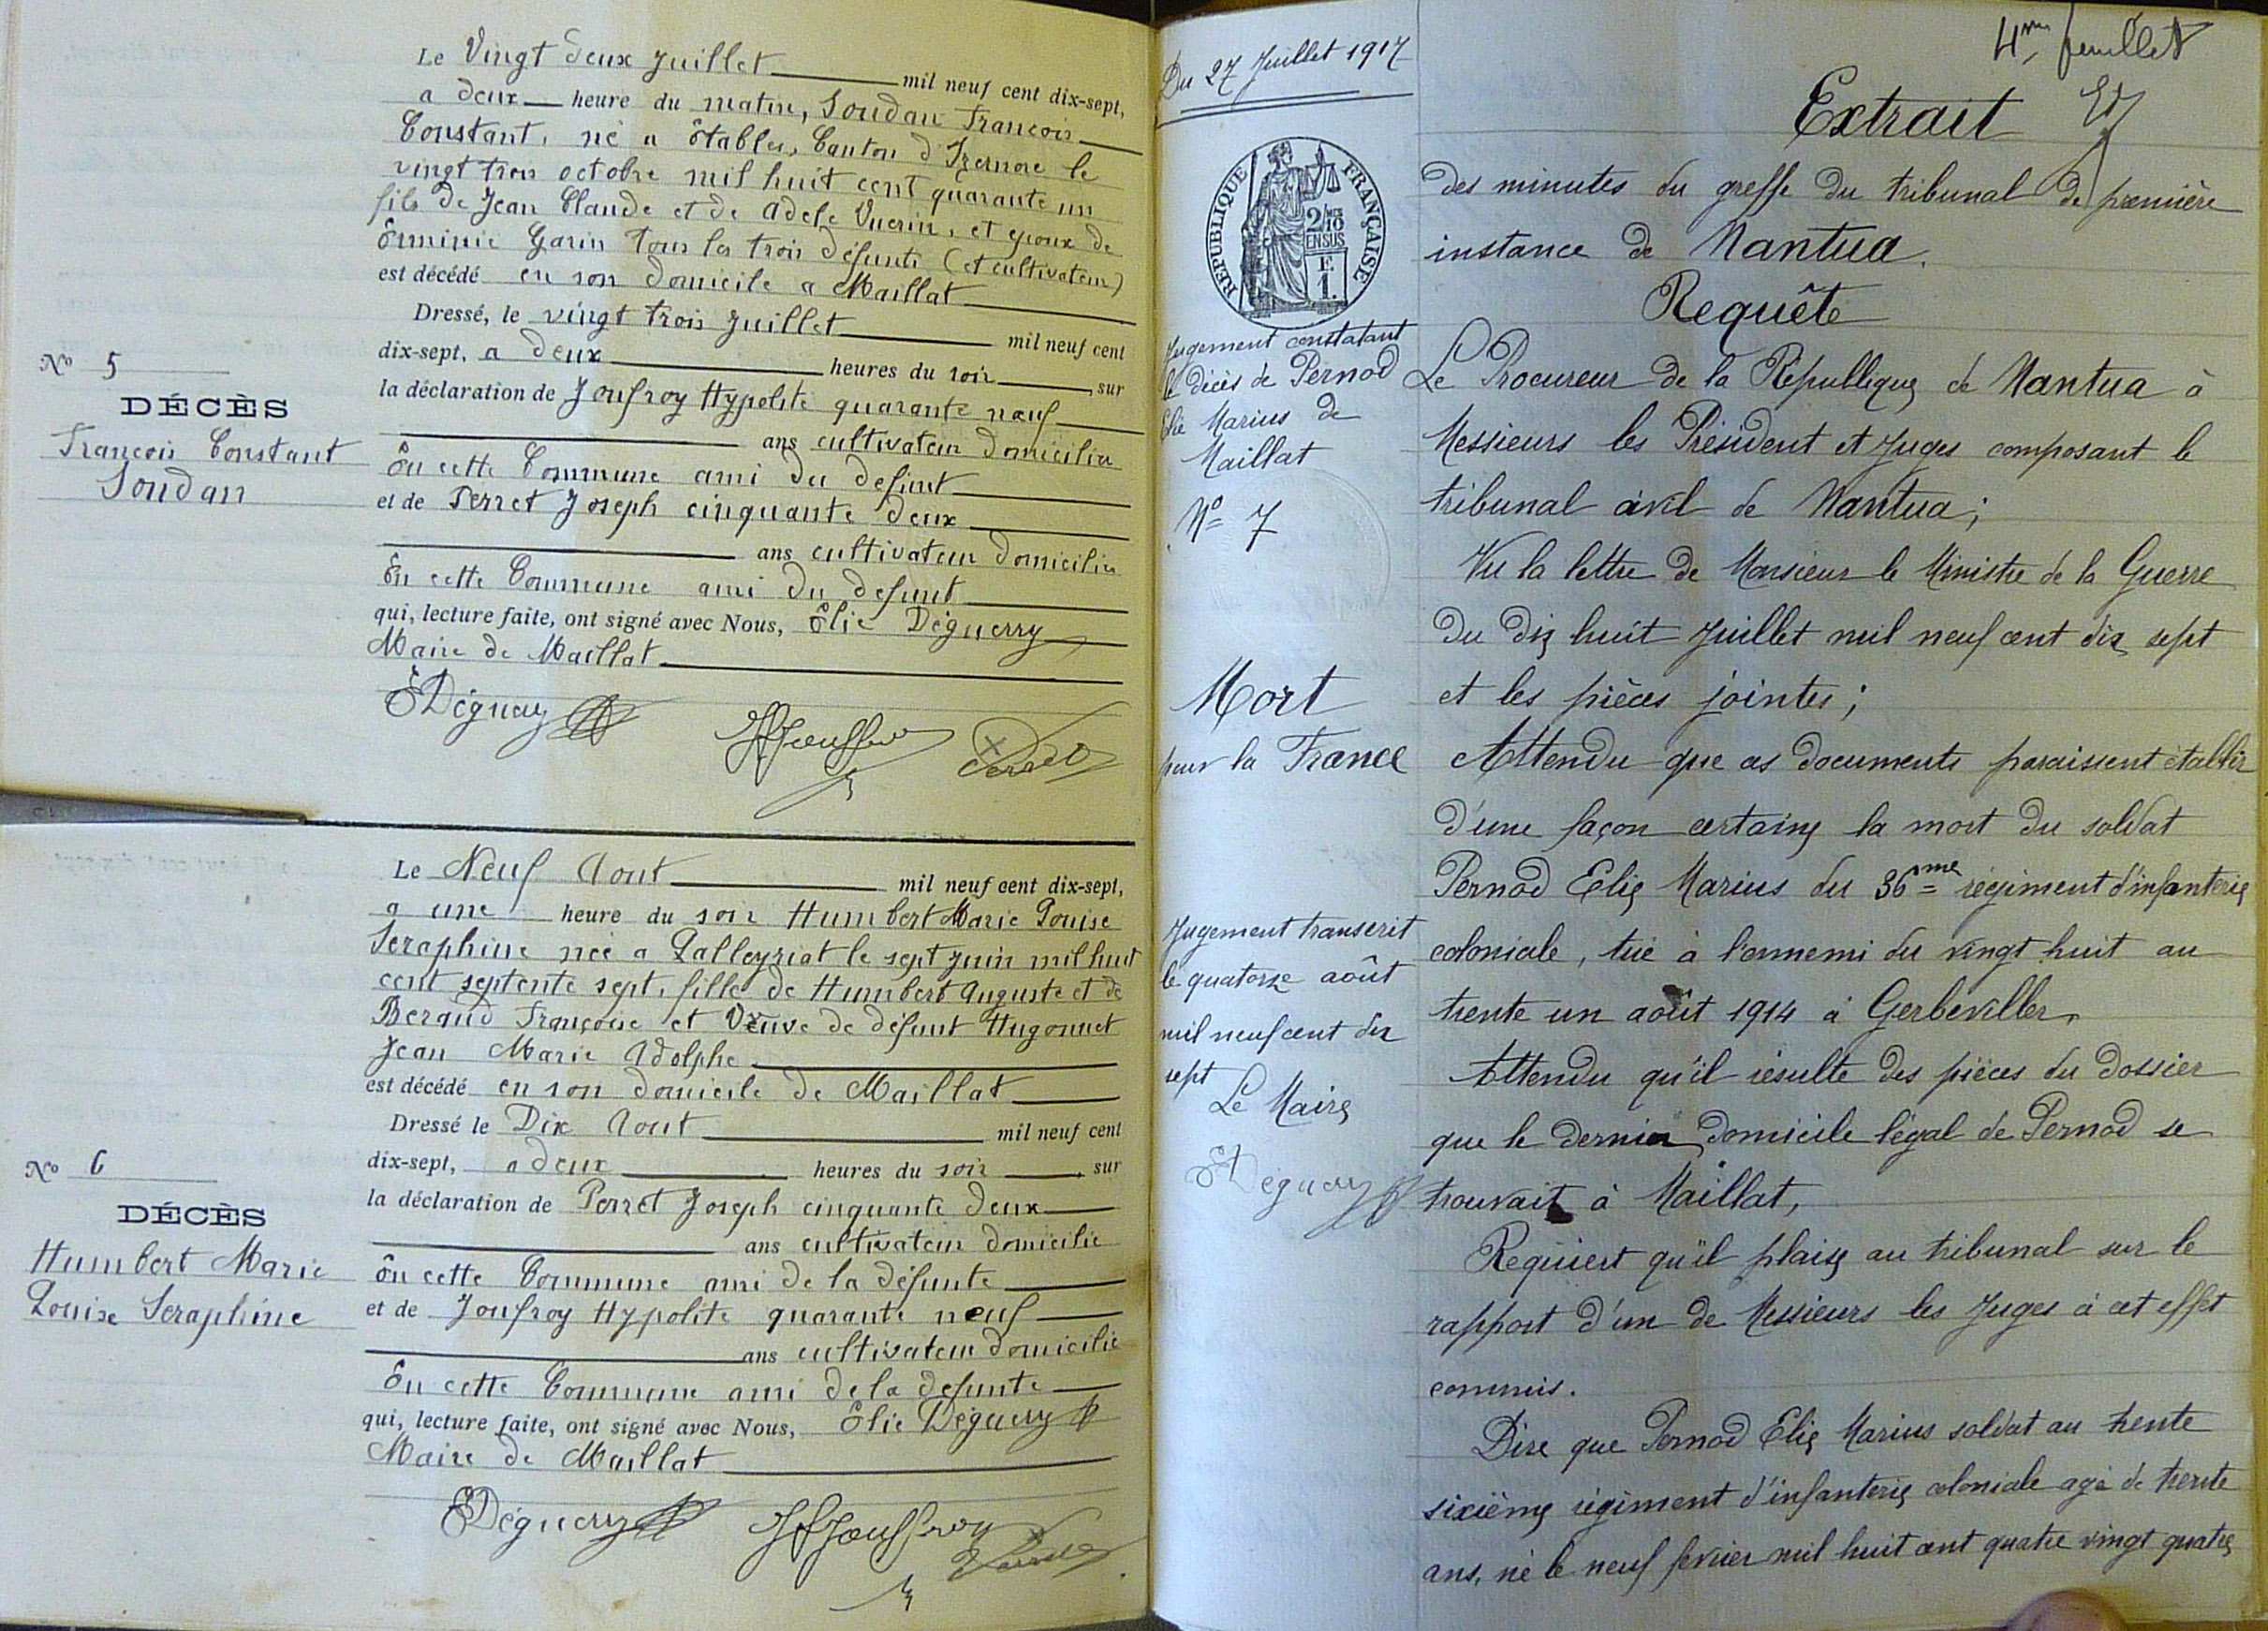 Le Vingt deux Juillet mil neuf cent dix-sept,
a deux heure du matin, Soudan François
Constant, né a Étables, Canton d'Izernore le
vingt trois octobre mil huit cent quarante un
fils de Jean Claude et de Adele Vuerin, et epoux de
Erminie Garin tous les trois défunts (et cultivateur)
est décédé en son domicile a Maillat
Dressé, le vingt trois Juillet mil neuf cent
dix-sept, a deux heures du soir, sur
la déclaration de Joufroy Hypolite quarante neuf
ans cultivateur domicilié
En cette Commune ami du defunt
et de Perret Joseph cinquante deux
ans cultivateur domicilié
En cette Commune ami du defunt
qui, lecture faite, ont signé avec Nous, Élie Déguerry
Maire de Maillat
EDéguerry HJouffroy Perret
No 5
DÉCÈS
François Constant
Soudan
Le Neuf Aout mil neuf cent dix-sept,
a une heure du soir Humbert Marie Louise
Seraphine née a Lalleyriat le sept juin mil huit
cent septente sept, fille de Humbert Auguste et de
Beraud Françoise et Veuve de défunt Hugonnet
Jean Marie Adolphe
est décédé en son domicile de Maillat
Dressé le Dix Aout mil neuf cent
dix-sept, a deux heures du soir, sur
la déclaration de Perret Joseph cinquante deux
ans cultivateur domicilié
En cette Commune ami de la défunte
et de Joufroy Hypolite quarante neuf
ans cultivateur domicilié
En cette Commune ami de la defunte
qui, lecture faite, ont signé avec Nous, Élie Déguerry
Maire de Maillat
EDéguerry HJouffroy
No 6
DÉCÈS
Humbert Marie
Louise Seraphine
Du 27 Juillet 1917
RÉPUBLIQUE FRANÇAISE
2/10
EN SUS
E.
1.
Jugement constatant
le décès de Pernod
Elie Marius de
Maillat
No 7
Mort
pour la France
Jugement transcrit
le quatorze août
mil neuf cent dix
sept
Le Maire
EDéguerry
4me feuillet
Extrait
des minutes du greffe du tribunal de première
instance de Nantua.
Requête
Le Procureur de la République de Nantua à
Messieurs les Président et Juges composant le
tribunal civil de Nantua;
Vu la lettre de Monsieur le Ministre de la Guerre
du dix huit Juillet mil neuf cent dix sept
et les pièces jointes;
Attendu que ces documents paraissent établir
d'une façon certaine la mort du soldat
Pernod Elie Marius du 36me régiment d'infanterie
coloniale, tué à l'ennemi du vingt huit au
trente un août 1914 à Gerbeviller,
Attendu qu'il résulte des pièces du dossier
que le dernier domicile légal de Pernod se
trouvait à Maillat,
Requiert qu'il plaise au tribunal sur le
rapport d'un de Messieurs les Juges à cet effet
commis.
Dire que Pernod Elie Marius soldat au trente
sixième régiment d'infanterie coloniale agé de trente
ans, né le neuf fevrier mil huit cent quatre vingt quatre